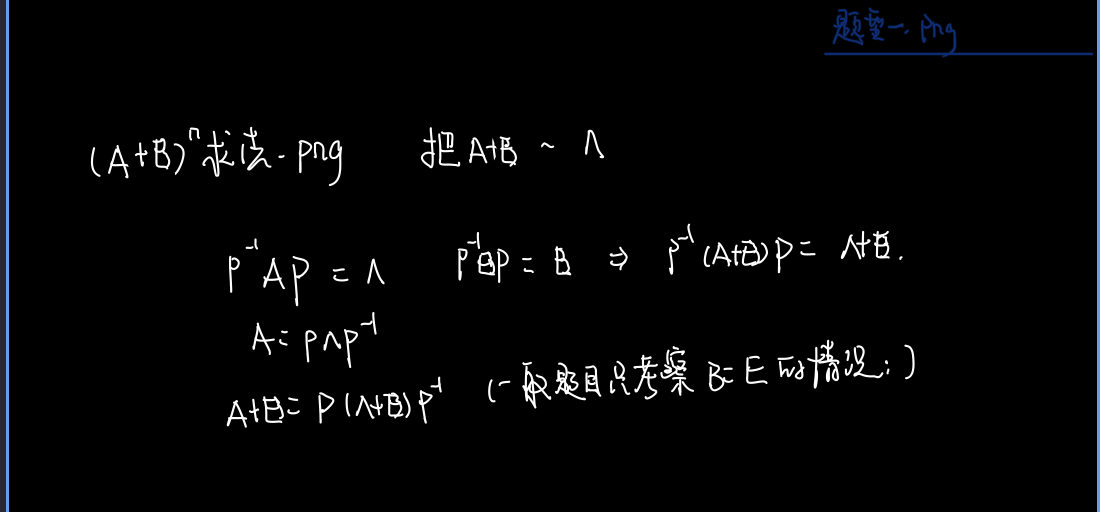 题型一.png
(A+B)ⁿ求法.png 把A+B ~ Λ
P⁻¹AP = Λ P⁻¹BP = B ⇒ P⁻¹(A+B)P = Λ+B.
A = PΛP⁻¹
A+B = P(Λ+B)P⁻¹ (一般题目只考察 B=E 的情况:)